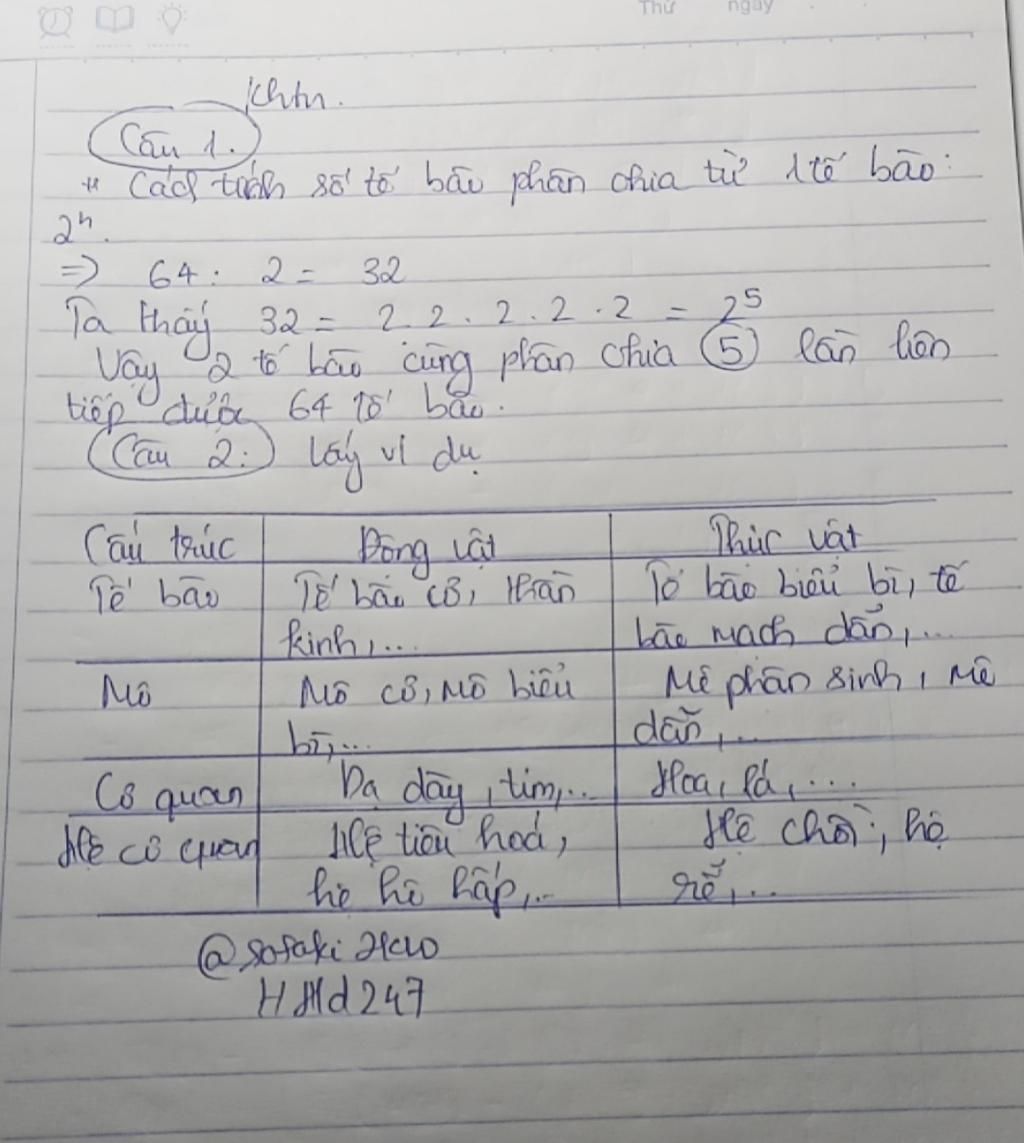 Thứ ngày
Khtn.
Câu 1.
* Cách tính số tế bào phân chia từ 1 tế bào:
2ⁿ.
=> 64 : 2 = 32
Ta thấy 32 = 2.2.2.2.2 = 2⁵
Vậy 2 tế bào cùng phân chia 5 lần liên
tiếp được 64 tế bào.
Câu 2: lấy ví dụ
Cấu trúc Động vật Thực vật
Tế bào Tế bào cơ, thần Tế bào biểu bì, tế
kinh,... bào mạch dẫn,...
Mô Mô cơ, Mô biểu Mô phân sinh, Mô
bì,... dẫn,...
Cơ quan Dạ dày, tim,... Hoa, lá,...
Hệ cơ quan Hệ tiêu hoá, Hệ chồi, hệ
hệ hô hấp,... rễ,...
HHd247